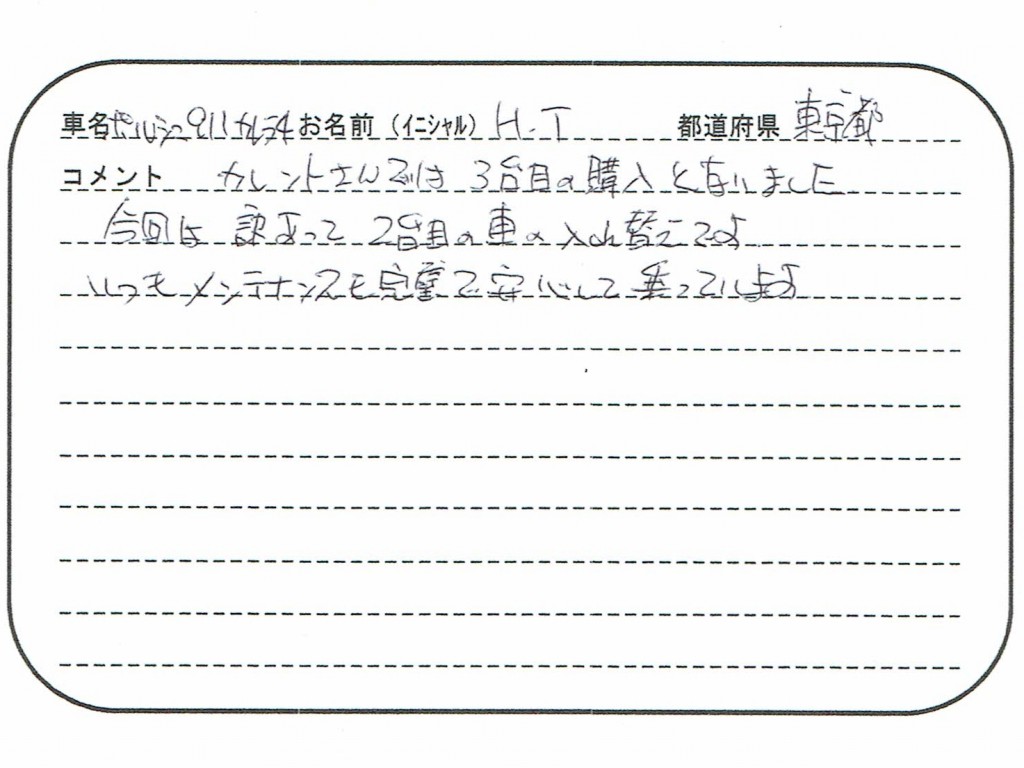 車名 ポルシェ911カレラ4 お名前（イニシャル） H.T 都道府県 東京都
コメント カレントさんでは 3台目の購入となりました
今回は 訳あって 2台目の車の入れ替えです
いつもメンテナンスも完璧で安心して乗っています